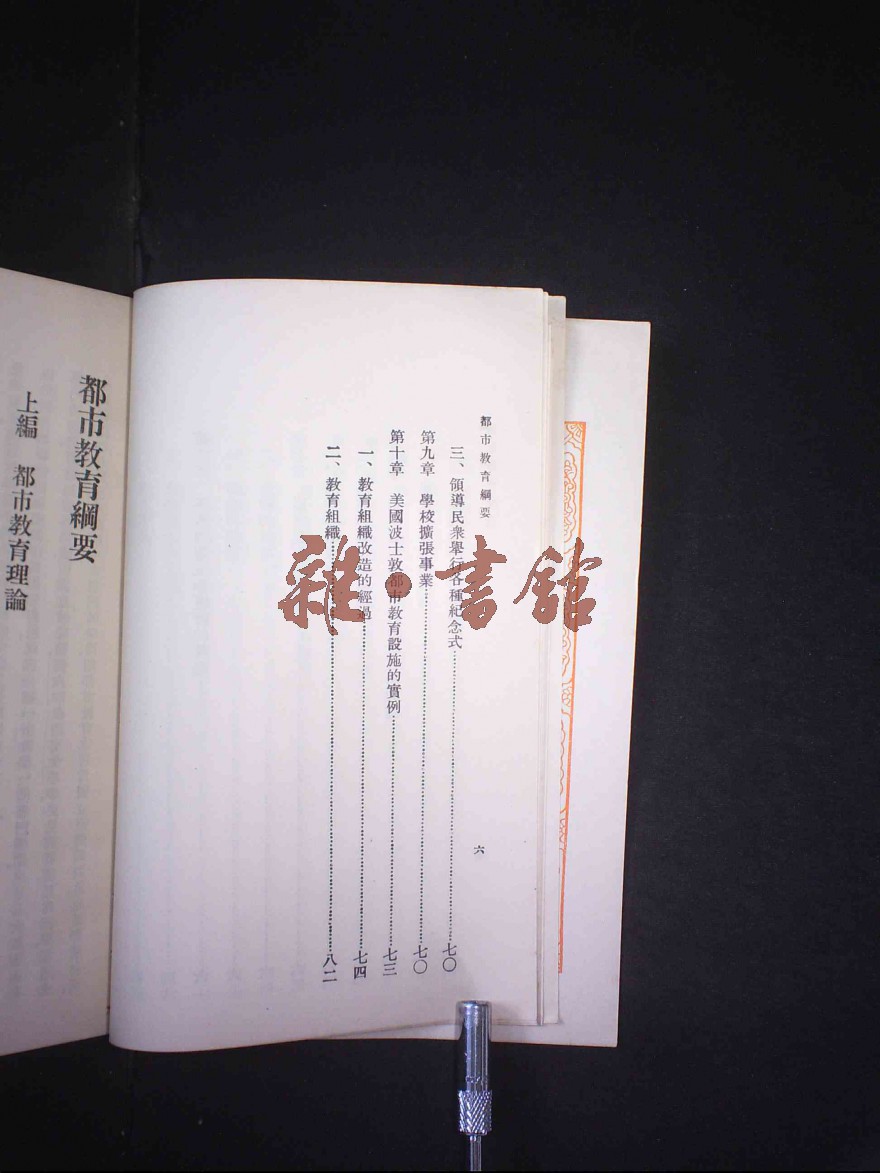 都市教育綱要
三、領導民衆舉行各種紀念式……七〇
第九章　學校擴張事業……七〇
第十章　美國波士敦都市教育設施的實例……七三
一、教育組織改造的經過……七四
二、教育組織……八二
六
都市教育綱要
上編　都市教育理論
雜·書館